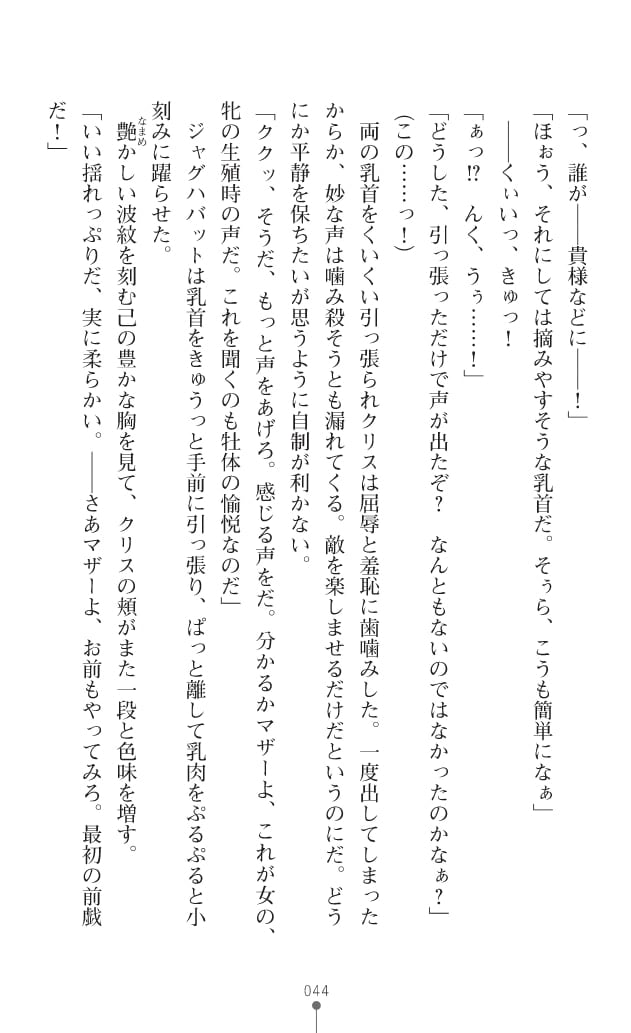 「っ、誰が――貴様などに――！」
「ほぉう、それにしては摘みやすそうな乳首だ。そぅら、こうも簡単になぁ」
――くぃいっ、きゅっ！
「ぁっ!?　んく、うぅ……！」
「どうした、引っ張っただけで声が出たぞ？　なんともないのではなかったのかなぁ？」
（この……っ！）
両の乳首をくいくい引っ張られクリスは屈辱と羞恥に歯噛みした。一度出してしまった
からか、妙な声は噛み殺そうとも漏れてくる。敵を楽しませるだけだというのにだ。どう
にか平静を保ちたいが思うように自制が利かない。
「ククッ、そうだ、もっと声をあげろ。感じる声をだ。分かるかマザーよ、これが女の、
牝の生殖時の声だ。これを聞くのも牡体の愉悦なのだ」
ジャグハバットは乳首をきゅうっと手前に引っ張り、ぱっと離して乳肉をぷるぷると小
刻みに躍らせた。
艶かしい波紋を刻む己の豊かな胸を見て、クリスの頬がまた一段と色味を増す。
なまめ
「いい揺れっぷりだ、実に柔らかい。――さあマザーよ、お前もやってみろ。最初の前戯
だ！」
044